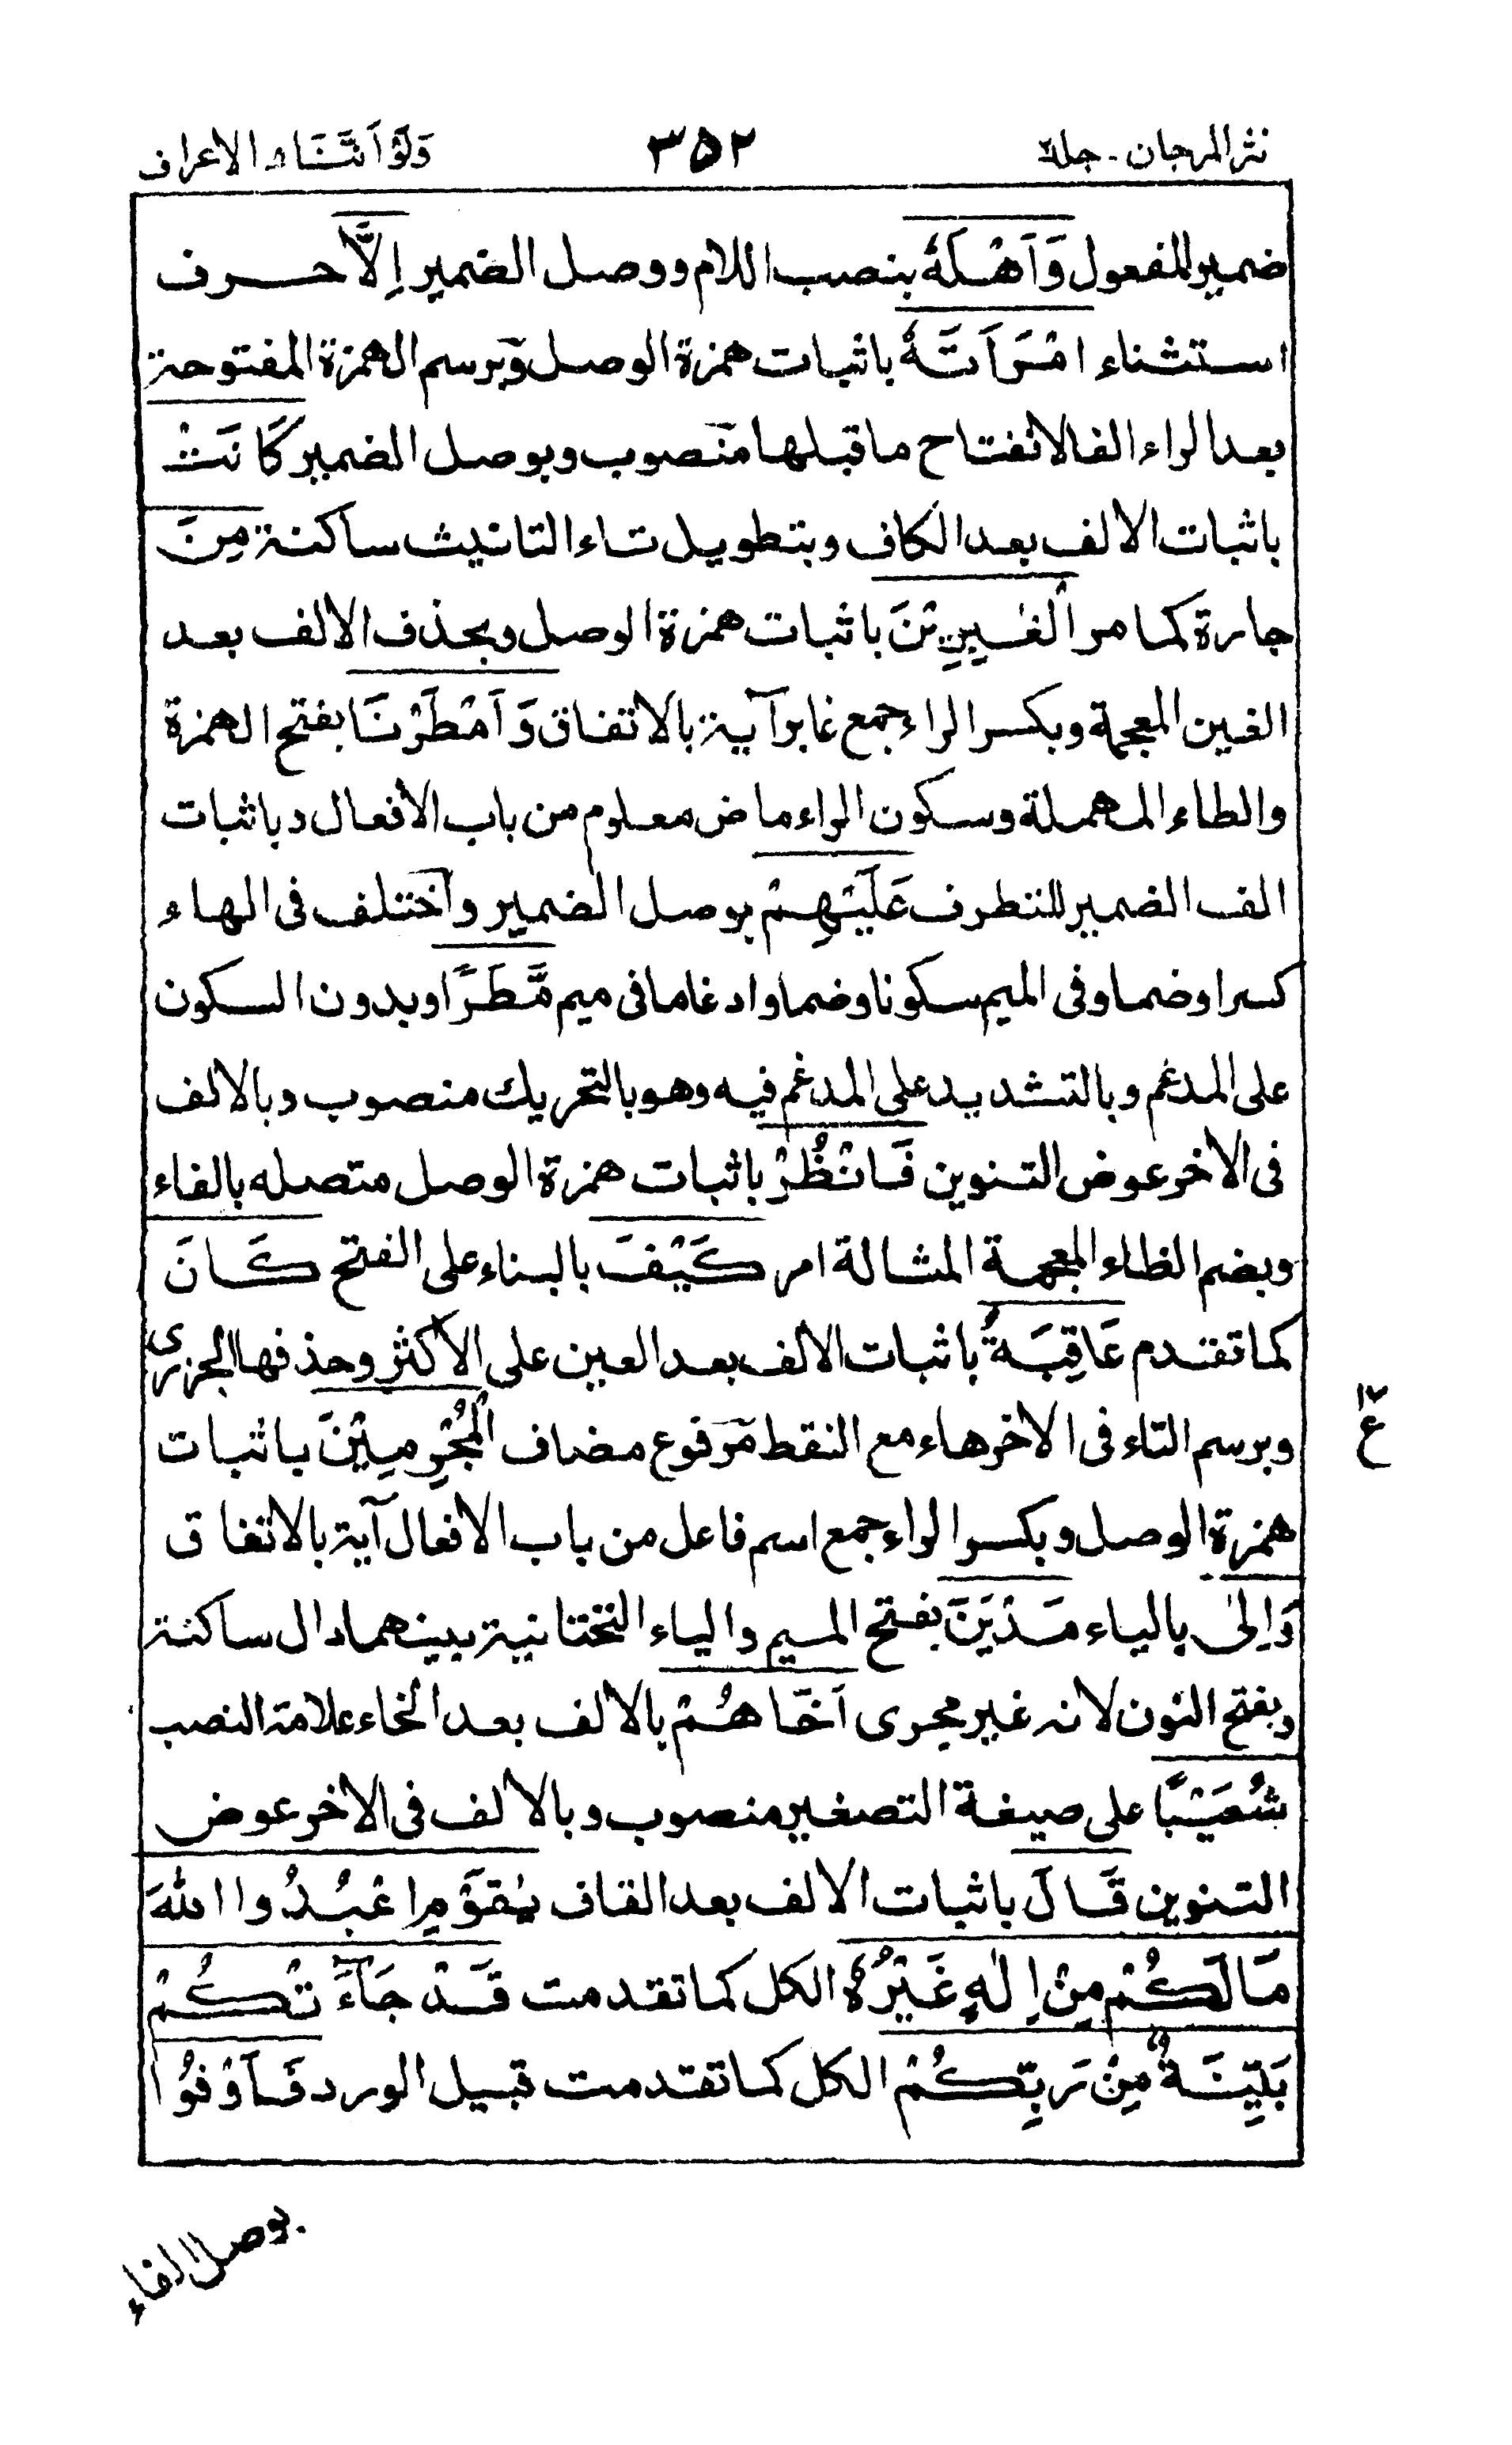 نثر المرجان - جلد٢
٣٥٢
وَلَوْ اَنَّنَا ٨ الاعراف
ضمير المفعول وَاَهْلَهٗ بنصب اللام ووصل الضمير اِلَّا حرف
استثناء امْرَاَتَهٗ باثبات همزة الوصل وبرسم الهمزة المفتوحة
بعد الراء الفا لانفتاح ما قبلها منصوب وبوصل الضمير كَانَتْ
باثبات الالف بعد الكاف وبتطويل تاء التانيث ساكنة مِنَ
جارة كما مر الْغٰبِرِيْنَ باثبات همزة الوصل وبحذف الالف بعد
الغين المعجمة وبكسر الراء جمع غابر آية بالاتفاق وَاَمْطَرْنَا بفتح الهمزة
والطاء المهملة وسكون الراء ماض معلوم من باب الافعال وباثبات
الف الضمير للتطرف عَلَيْهِمْ بوصل الضمير واختلف فى الهاء
كسرا وضما وفى الميم سكونا وضما وادغاما فى ميم مَّطَرًا وبدون السكون
على المدغم وبالتشديد على المدغم فيه وهو بالتحريك منصوب وبالالف
فى الاخر عوض التنوين فَانْظُرْ باثبات همزة الوصل متصله بالفاء
وبضم الظاء المعجمة المشالة امر كَيْفَ بالبناء على الفتح كَانَ
كما تقدم عَاقِبَةُ باثبات الالف بعد العين على الاكثر وحذفها الجزرى
وبرسم التاء فى الاخر هاء مع النقط مرفوع مضاف الْمُجْرِمِيْنَ باثبات
همزة الوصل وبكسر الراء جمع اسم فاعل من باب الافعال آية بالاتفاق
وَاِلٰى بالياء مَدْيَنَ بفتح الميم والياء التختانية بينهما دال ساكنة
وبفتح النون لانه غير مجرى اَخَاهُمْ بالالف بعد الخاء علامة النصب
شُعَيْبًا على صيغة التصغير منصوب وبالالف فى الاخر عوض
التنوين قَالَ باثبات الالف بعد القاف يٰقَوْمِ اعْبُدُوا اللّٰهَ
مَا لَكُمْ مِنْ اِلٰهٍ غَيْرُهٗ الكل كما تقدمت قَدْ جَآءَتْكُمْ
بَيِّنَةٌ مِنْ رَبِّكُمْ الكل كما تقدمت قبيل الورد فَاَوْفُوا
١٧
ع
بوصل الفاء